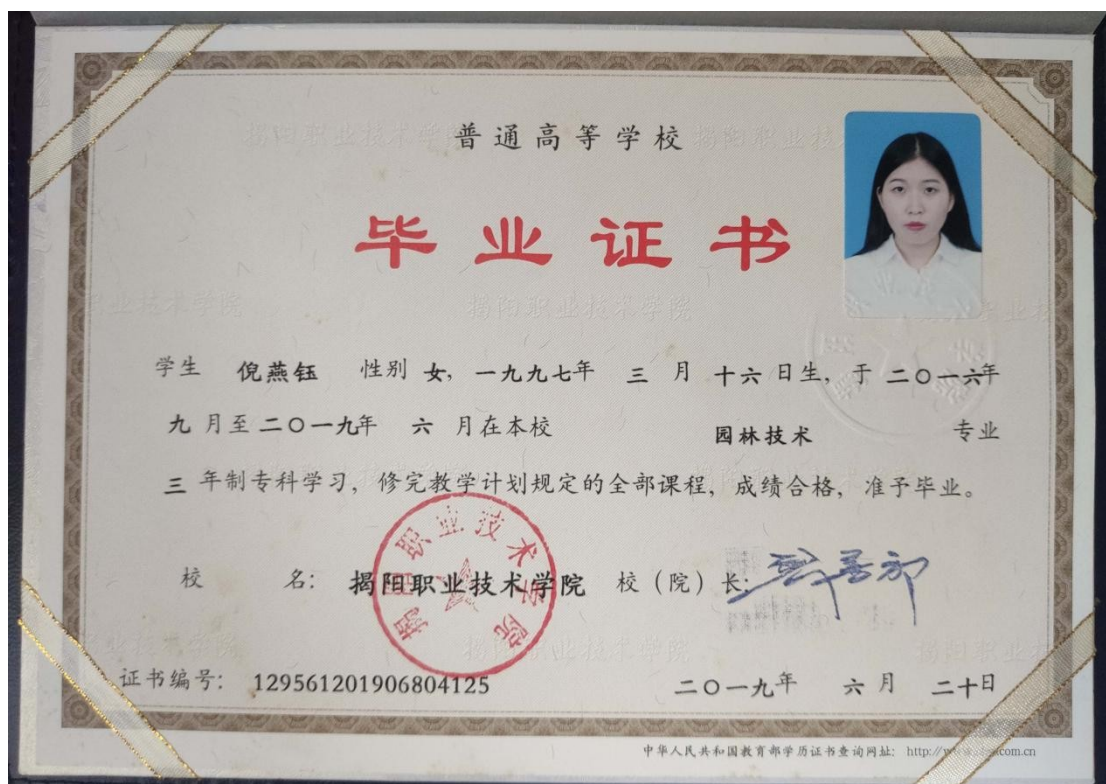 普通高等学校
毕业证书
学生 倪燕钰 性别 女，一九九七年 三 月 十六 日生，于 二〇一六年
九 月至 二〇一九年 六 月在本校 园林技术 专业
三 年制专科学习，修完教学计划规定的全部课程，成绩合格，准予毕业。
校 名： 揭阳职业技术学院 校（院）长：
揭阳职业技术学院
证书编号： 129561201906804125 二〇一九年 六 月 二十日
中华人民共和国教育部学历证书查询网址： http://
com.cn